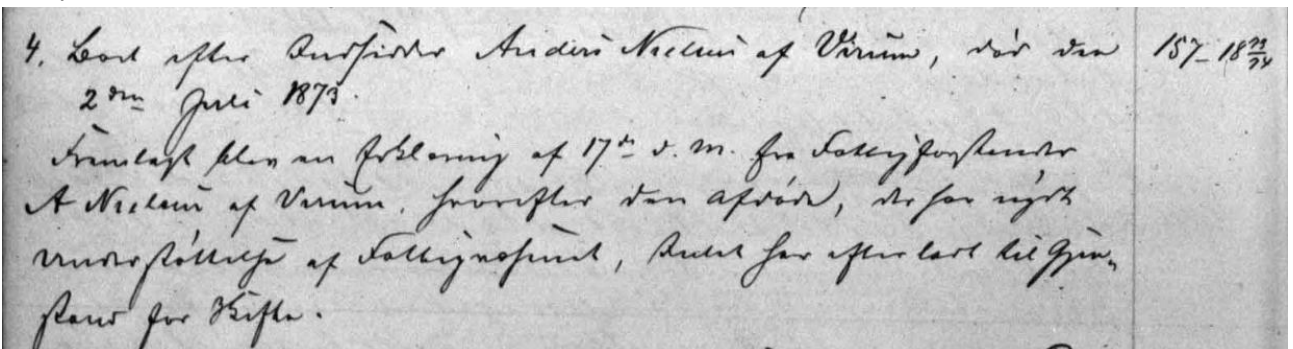 4. Boet efter Indsidder Anders Nielsen af Virum, død den 157-18 73/74
2den Juli 1873.
Fremlagt blev en Erklæring af 17de d. M. fra Fattigforstander
A Nielsen af Virum, hvorefter den Afdøde, der har nydt
Understøttelse af Fattigvæsenet, Intet har efterladt til Gjen-
stand for Skifte.